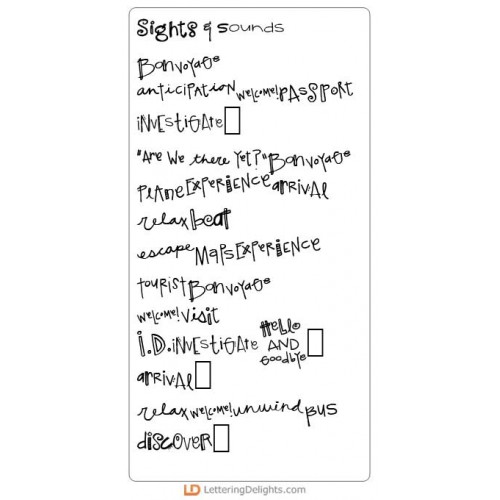 Sights & Sounds
Bon voyage
anticipation welcome! PASSPORT
investigate
"Are We there yet?" Bon voyage
PLANE EXPERIENCE arrival
relax beat
escape Maps EXPERIENCE
tourist Bon voyage
welcome! visit
I.D. investigate Hello AND Goodbye
arrival
relax welcome! unwind BUS
discover
LD LetteringDelights.com